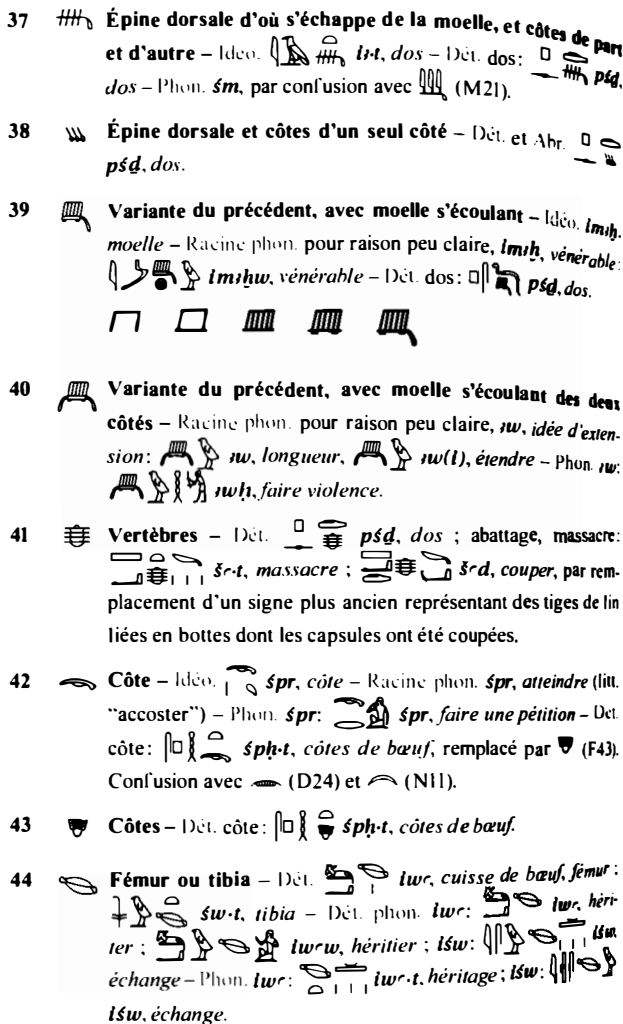 37 Épine dorsale d'où s'échappe de la moelle, et côtes de part
et d'autre – Idéo. iꜣ·t, dos – Dét. dos:
dos – Phon. śm, par confusion avec (M21). pśḏ,
38 Épine dorsale et côtes d'un seul côté – Dét. et Abr.
pśḏ, dos.
39 Variante du précédent, avec moelle s'écoulant – Idéo. imꜣḫ,
moelle – Racine phon. pour raison peu claire, imꜣḫ, vénérable:
imꜣḫw, vénérable – Dét. dos: pśḏ, dos.
40 Variante du précédent, avec moelle s'écoulant des deux
côtés – Racine phon. pour raison peu claire, ꜣw, idée d'exten-
sion: ꜣw, longueur, ꜣw(i), étendre – Phon. ꜣw:
ꜣwḥ, faire violence.
41 Vertèbres – Dét. pśḏ, dos ; abattage, massacre:
šꜥ·t, massacre ; šꜥd, couper, par rem-
placement d'un signe plus ancien représentant des tiges de lin
liées en bottes dont les capsules ont été coupées.
42 Côte – Idéo. śpr, côte – Racine phon. śpr, atteindre (litt.
“accoster”) – Phon. śpr: śpr, faire une pétition – Dét.
côte: śpḥ·t, côtes de bœuf, remplacé par (F43).
Confusion avec (D24) et (N11).
43 Côtes – Dét. côte: śpḥ·t, côtes de bœuf.
44 Fémur ou tibia – Dét. iwꜥ, cuisse de bœuf, fémur ;
św·t, tibia – Dét. phon. iwꜥ: iwꜥ, héri-
ter ; iwꜥw, héritier ; iśw: iśw,
échange – Phon. iwꜥ: iwꜥ·t, héritage ; iśw:
iśw, échange.